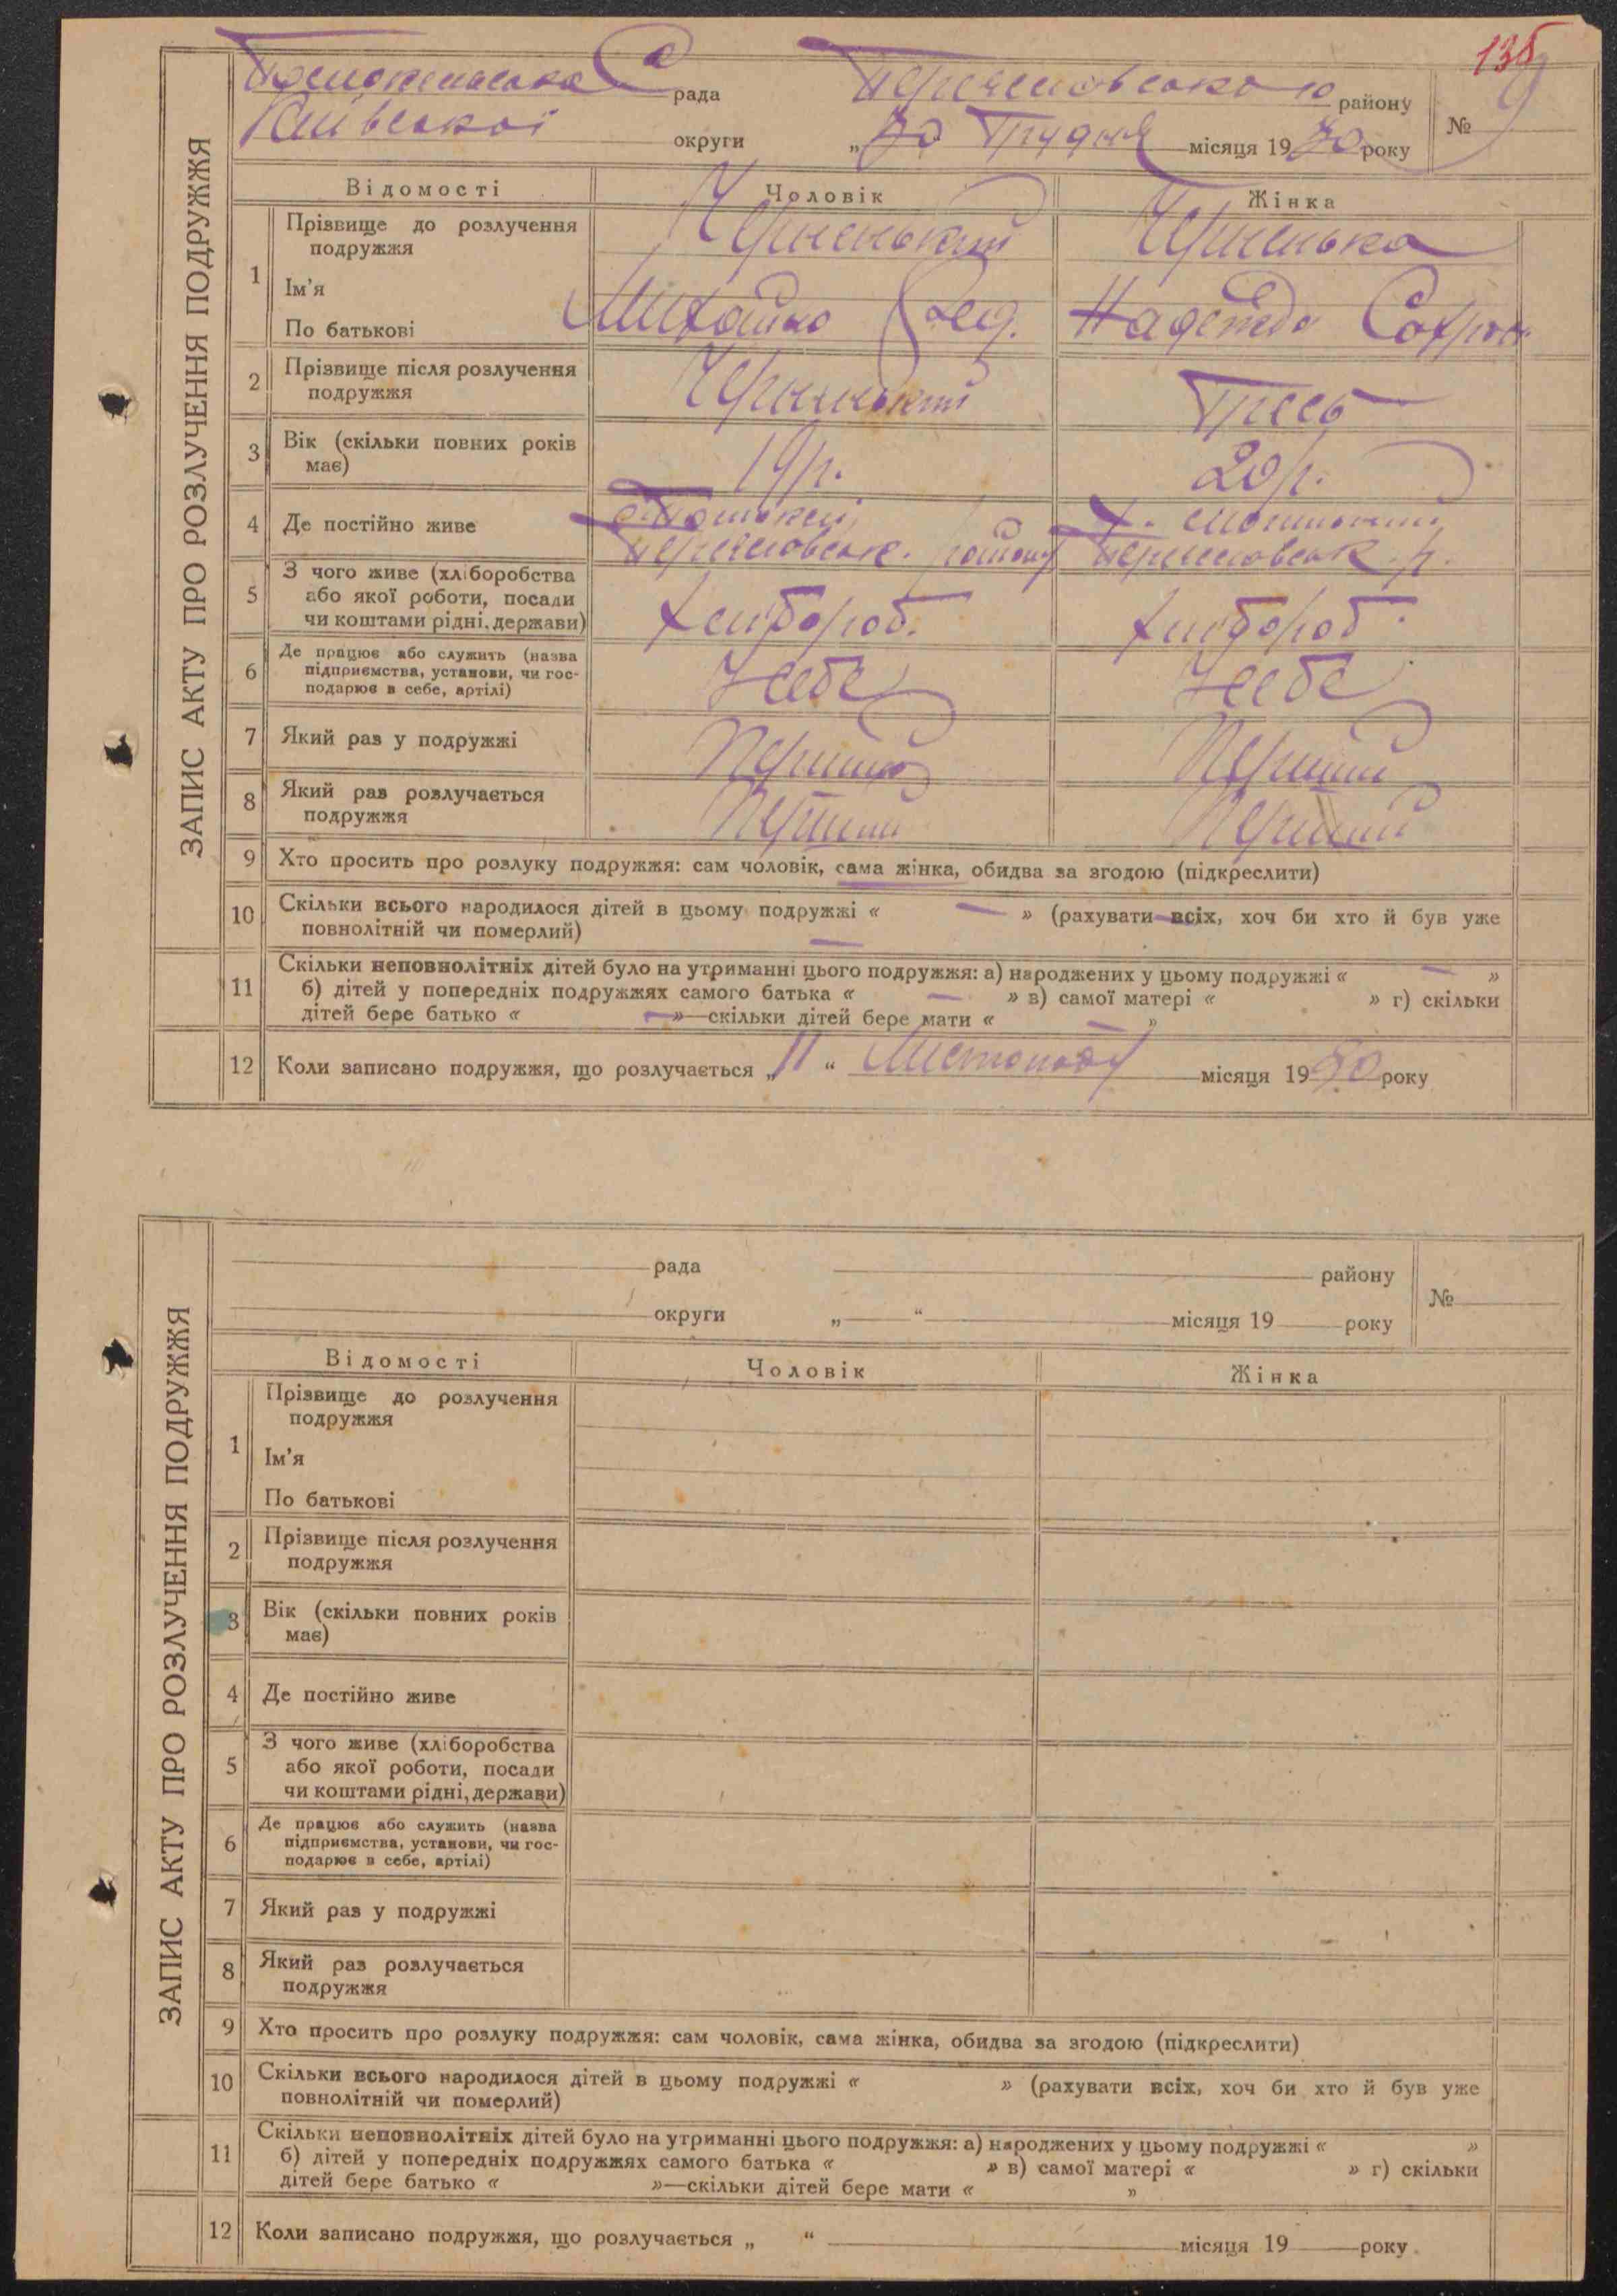 135
рада району
Київської округи „30 Грудня місяця 1930 року № 9
ЗАПИС АКТУ ПРО РОЗЛУЧЕННЯ ПОДРУЖЖЯ
Відомості Чоловік Жінка
1 Прізвище до розлучення подружжя Черненький Черненька
Ім'я Михайло Надежда
По батькові
2 Прізвище після розлучення подружжя Черненький
3 Вік (скільки повних років має) 19 р. 20 р.
4 Де постійно живе
5 З чого живе (хліборобства або якої роботи, посади чи коштами рідні, держави) Хлібороб. Хлібороб.
6 Де працює або служить (назва підприємства, установи, чи господарює в себе, артілі) У себе У себе
7 Який раз у подружжі Перший Перший
8 Який раз розлучається подружжя Перший Перший
9 Хто просить про розлуку подружжя: сам чоловік, сама жінка, обидва за згодою (підкреслити)
10 Скільки всього народилося дітей в цьому подружжі « — » (рахувати всіх, хоч би хто й був уже
повнолітній чи померлий) —
11 Скільки неповнолітніх дітей було на утриманні цього подружжя: а) народжених у цьому подружжі « — »
б) дітей у попередніх подружжях самого батька « — » в) самої матері « » г) скільки
дітей бере батько « — »—скільки дітей бере мати « — »
12 Коли записано подружжя, що розлучається „ 11 “ Листопаду місяця 1930 року
рада району
округи „ “ місяця 19 року №
ЗАПИС АКТУ ПРО РОЗЛУЧЕННЯ ПОДРУЖЖЯ
Відомості Чоловік Жінка
1 Прізвище до розлучення
подружжя
Ім'я
По батькові
2 Прізвище після розлучення
подружжя
3 Вік (скільки повних років
має)
4 Де постійно живе
5 З чого живе (хліборобства
або якої роботи, посади
чи коштами рідні, держави)
6 Де працює або служить (назва
підприємства, установи, чи гос-
подарює в себе, артілі)
7 Який раз у подружжі
8 Який раз розлучається
подружжя
9 Хто просить про розлуку подружжя: сам чоловік, сама жінка, обидва за згодою (підкреслити)
10 Скільки всього народилося дітей в цьому подружжі « » (рахувати всіх, хоч би хто й був уже
повнолітній чи померлий)
11 Скільки неповнолітніх дітей було на утриманні цього подружжя: а) народжених у цьому подружжі « »
б) дітей у попередніх подружжях самого батька « » в) самої матері « » г) скільки
дітей бере батько « »—скільки дітей бере мати « »
12 Коли записано подружжя, що розлучається „ “ місяця 19 року